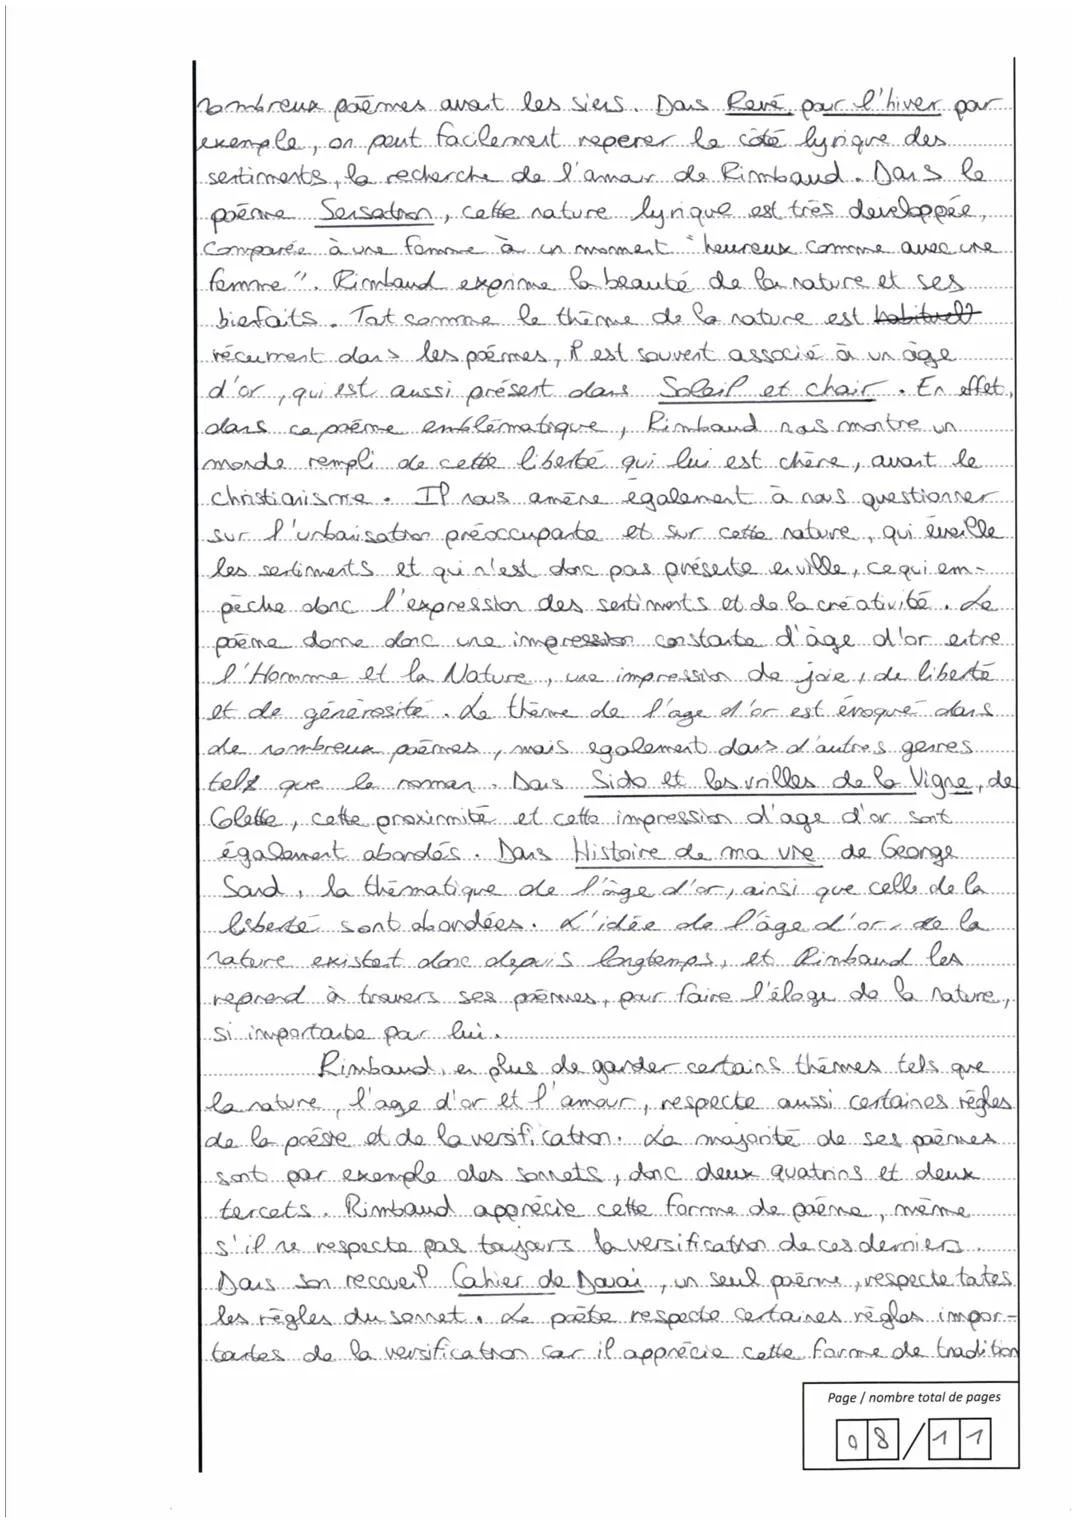 nombreux poèmes avant les siens. Dans Revé pour l'hiver par
exemple, on peut facilement reperer le côté lyrique des
sentiments, la recherche de l'amour de Rimbaud. Dans le
poème Sensation, cette nature lyrique est très developpée,
comparée à une femme à un moment "heureux comme avec une
femme". Rimbaud exprime la beauté de la nature et ses
bienfaits. Tout comme le thème de la nature est habituel
récurrent dans les poèmes, il est souvent associé à un âge
d'or, qui est aussi présent dans Soleil et chair. En effet,
dans ce poème emblématique, Rimbaud nous montre un
monde rempli de cette liberté qui lui est chère, avant le
christianisme. Il nous amène également à nous questionner
sur l'urbanisation préoccupante et sur cette nature, qui éveille
les sentiments et qui n'est donc pas présente en ville, ce qui em-
pêche donc l'expression des sentiments et de la créativité. Le
poème donne donc une impression constante d'âge d'or entre
l'Homme et la Nature, une impression de joie, de liberté
et de générosité. Le thème de l'age d'or est évoqué dans
de nombreux poèmes, mais egalement dans d'autres genres
tels que le roman. Dans Sido et les vrilles de la Vigne, de
Colette, cette proximité et cette impression d'age d'or sont
également abordés. Dans Histoire de ma vie de George
Sand, la thématique de l'âge d'or, ainsi que celle de la
liberté sont abordées. L'idée de l'âge d'or, de la
nature existent donc depuis longtemps, et Rimbaud les
reprend à travers ses poèmes, pour faire l'éloge de la nature,
si importante pour lui.
Rimbaud, en plus de garder certains thèmes tels que
la nature, l'age d'or et l'amour, respecte aussi certaines règles
de la poésie et de la versification. La majorité de ses poèmes
sont par exemple des sonnets, donc deux quatrins et deux
tercets. Rimbaud apprécie cette forme de poème, même
s'il ne respecte pas toujours la versification de ces derniers.
Dans son reccueil Cahier de Douai, un seul poème, respecte toutes
les règles du sonnet. Le poète respecte certaines règles impor-
tantes de la versification car il apprécie cette forme de tradition
Page / nombre total de pages
08/11